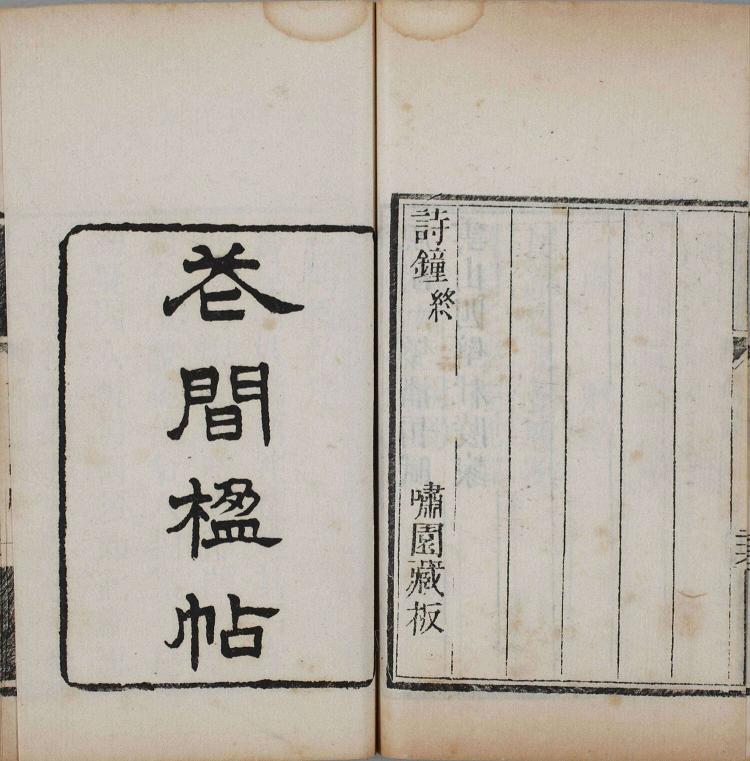 詩鐘終
嘯園藏板
芲間楹帖